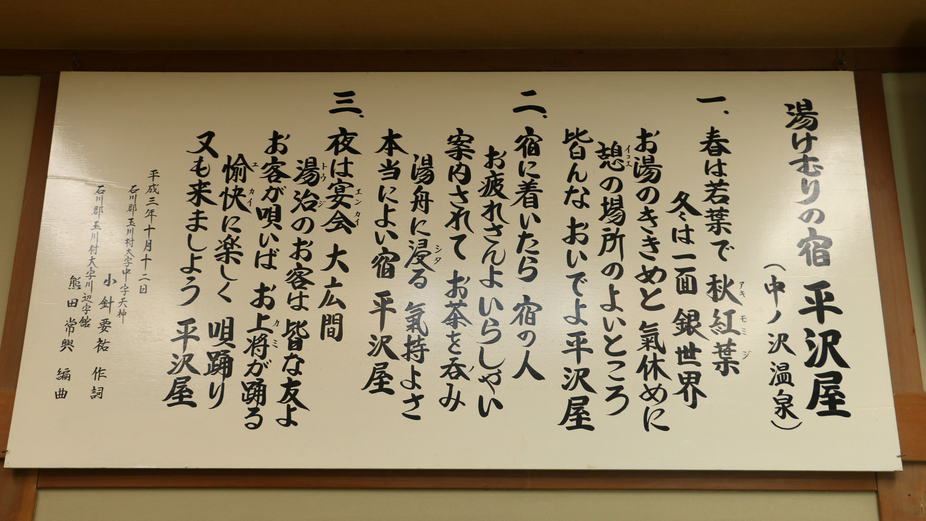 湯けむりの宿 平沢屋
(中ノ沢温泉)
一、春は若葉で 秋紅葉
冬は一面 銀世界
お湯のききめと 氣休めに
憩の場所のよいところ
皆んな おいでよ 平沢屋
二、宿に着いたら 宿の人
お疲れさんよ いらしゃい
案内されて お茶を呑み
湯舟に浸る 氣持よさ
本当によい宿 平沢屋
三、夜は宴会 大広間
湯治のお客は 皆な友よ
お客が唄いば お上将が踊る
愉快に楽しく 唄踊り
又も来ましよう 平沢屋
平成三年十月十二日
石川郡玉川村大字中字天神
小針要祐 作詞
石川郡玉川村大字川辺字館
熊田常興 編曲